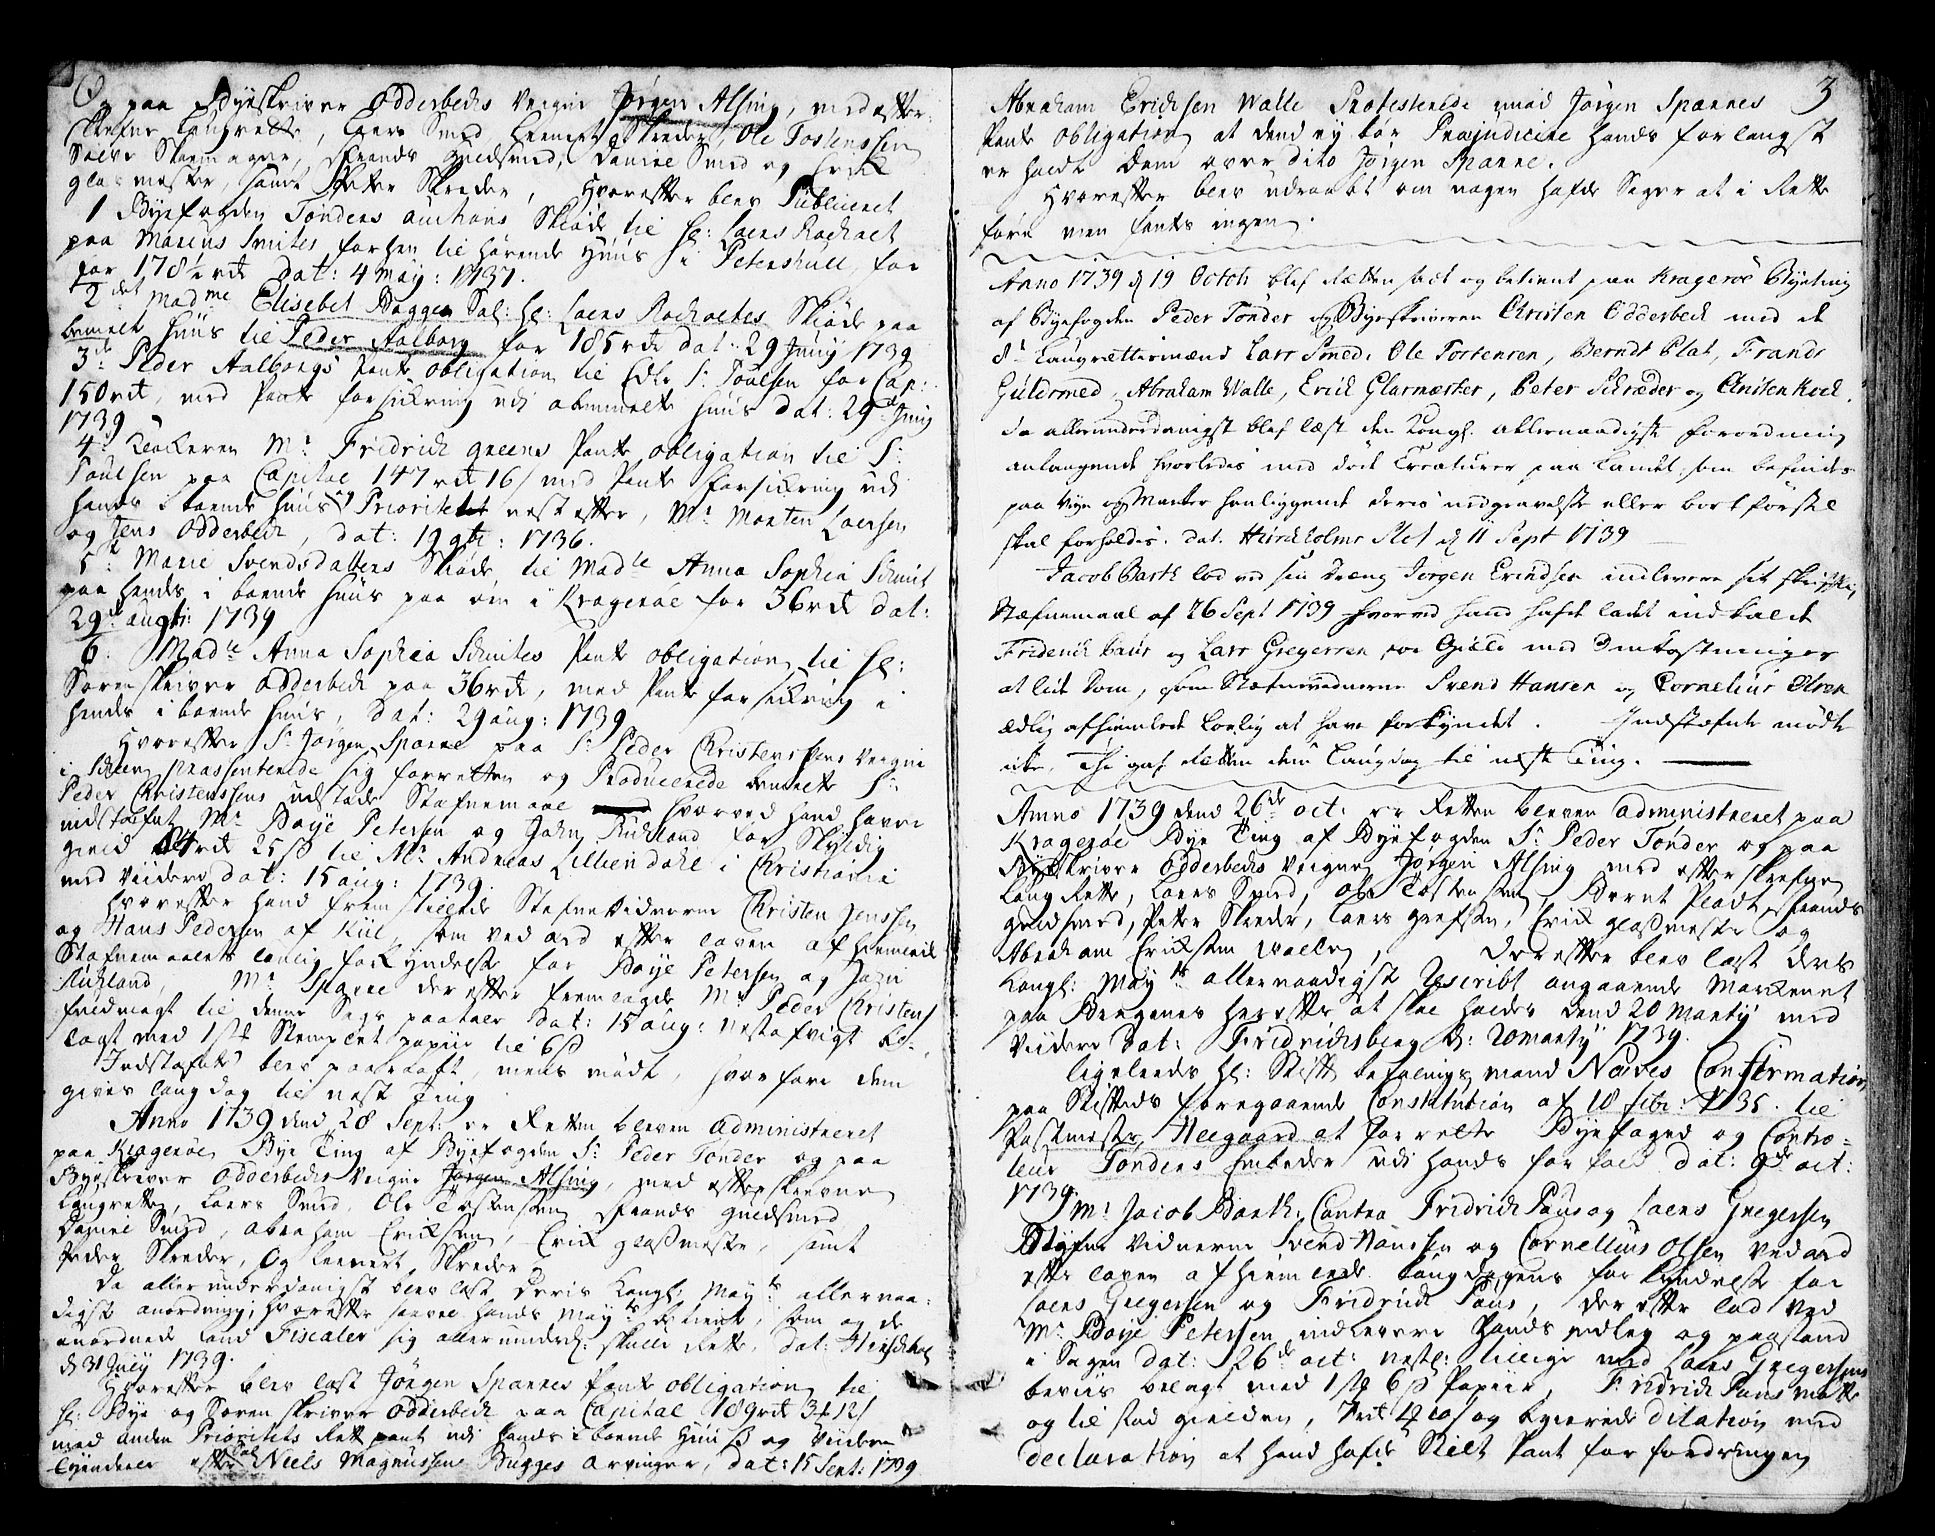 Og paa Byeskriver Odderbechs Veigne Jørgen Alsing, med efter
skrefne Laugrette, Laers Smed, Lennert Skreder, Ole Tostenssen
Skomager, Frands Guldsmed, Daniel Smed og Erick
glasmester, samt Peter Skreder, Hvorefter blev Publiceret
1 Byefogden Tonders auctions Skiøde til Hr: Laers Rachaet
paa Marcus Smites forhen tilhørende Huus i Petershull for
for 178½ rdr dat: 4 May: 1737.
2det Madme Elisebet Bagges Sal: Hr: Laers Rachaetes Skiøde paa
bemelte Huus til Peder Aalborg for 185 rdr dat: 29 Juny 1739
3de Peder Aalborgs Pante obligation til Edle Sr Poulsen for Cap:
150 rdr, med Pante forsikring udi obemelte Huus dat: 29de Juny
1739
4de Mr Fridrich greens Pante obligation til Sr
Poulsen paa Capital 147 rdr 16 s med Pante forsikring udi
hands iboende Huus og Prioritet nest efter, Mr Morten Laersen
og Jens Odderbech, dat: 1736.
5te Marie Svendsdatters Skiøde til Madle Anna Sophia Schmit
paa hendes iboende Huus paa øen i Kragerøe for 36 rdr dat:
29de aug: 1739
6. Madle Anna Sophia Schmites Pante obligation til Hr:
Sorenskriver Odderbech paa 36 rdr, med Pante forsikring i
hendes iboende Huus, dat: 29 aug: 1739
Hvorefter Sr Jørgen Spanne paa Sr Peder Christenssens Veigne
i Scheen præssenterede sig for retten og Producerede bemelte Sr
Peder Christenssens udstæde Stefnemaal hvorved hand havde
indstefnt Mr Boye Petersen og John Kuhland for Skyldig
gield 24 rdr 25 s til Mr Andreas Lilliendahl i Christiania
med Videre dat: 15 aug: 1739.
Hvorefter hand fremstillede Stefnevidnerne Christen Jenssen
og Hans Pedersen af Kiil, som ved æd efter loven afhiemlede
Stefnemaalets lovlig forkyndelse for Boye Petersen og John
Kuhland, Mr Spanne derefter fremlagde Mr Peder Christens
fuldmagt til denne Sags paatale dat: 15 aug: nestafvigt be
lagt med 1 st Stemplet papiir til 6 s
Indstefnte blev paaraabt, mens mødt, hvorfore dem
gives laugdag til nest Ting
Anno 1739 dend 28 Sept: er Retten bleven administreret
paa Kragerøe Bye Ting af Byefogden Sr Peder Tonder og paa
Byeskriver Odderbechs Veigne Jørgen Alsing, med efterskrevne
Laugrette, Laers Smed, Ole Tostensen, Frands guldsmed
Daniel Smed, Abraham Ericksen, Erick glasmester, samt
Peder Skreder, Og Lennert Skreder
Da allerunderdanigst blev læst Deris Kongl: Mayts allernaa
digste anordning, hvorefter saavel hands Mayts betient, som og de
anordnede Land Fiscaler sig allerunderd: skulle Rette, dat: Hirschholm
d 31 July 1739.
Hvorefter blev læst Jørgen Spannes Pante obligation til
Hr: Bye og Soren skriver Odderbech paa Capital 189 rdr 3 12 s
med anden Prioritets Ret pant udi hands iboende Huus og Videre
efter Sal Niels Magnussens Bugges arvinger, dat: 15 Sept: 1739
3
Abraham Erichsen Walle Protesterede imod Jørgen Spannes
Pante obligation at dend ey bør Præjudicere hands forlangst
er holdt Dom over dito Jørgen Spanne.
Hvorefter blev udraabt om nogen hafde Sager at i Rette
føre men fantes ingen.
Anno 1739 d 19 Octob: blef Retten sadt og betient paa Kragerøe Byeting
af Byefogden Peder Tonder og Byeskriveren Christen Odderbech med de
8te Laugrettesmænd Lars Smed, Ole Tortensen, Berndt Plat, Frands
Guldsmed, Abraham Walle, Erich Glarmæster, Peter Schræder og Christen Koch.
da allerunderdanigst blef læst den Kongl: allernaadigste forordning
anlangende hvorledes med døde Creaturer paa Landet, som befindes
paa Veye og Marker henliggende deris nedgravelse eller bortførsel
skal forholdis. dat. Hirschholms Slot d 11 Sept 1739
Jacob Barth lod ved sin Dreng Jørgen Erindsen indlevere sit skriftlig
Stæfnemaal af 26 Sept 1739 hvorved hand hafde ladet indkalde
Friderich Paus og Lars Gregersen for Giæld med Omkostninger
at lide Dom, som Stæfnevidnerne Svend Hansen og Cornelius Olsen
ædlig afhiemlede lovlig at have forkyndet. Indstæfnte mødte
icke, Thi gaf Retten dem Laugdag til nest Ting.
Anno 1739 dend 26de oct: er Retten bleven administreret paa
Kragerøe Bye Ting af Byefogden Sr Peder Tonder og paa
Byeskriver Odderbechs Veigne Jørgen Alsing med efterskrefne
Laug Rette, Laers Smed, Ole Tostensen, Bernt Pladt, Frands
guldsmed, Peter Skreder, Laers Grefsen, Erick glasmester og
Abraham Erikssen Walle, Derefter blev læst Deris
Kongl: Mayts allernaadigste Rescribt angaaende Markenet
paa Bragenes herefter at skal holdes dend 20 Marty med
Videre dat: Fridrichsberg d: 20 Marty 1739.
ligeleeds Hr: Stiftbefalings mand Neubes Confirmation
paa Stiftets foregaaende Constitution af 10 fibr: 1735. til
Postmester Neegaard at forrette Byefoged og Contro=
leur Tonders Embeder udi hands forfald dat: 9de oct:
1739.
Mr Jacob Barth: Contra Fridrich Paus og Laers Gregersen
Stefne Vidnerne Svend Hanssen og Cornelius Olsen ved æd
efter loven afhiemlede laugdagens forkyndelse for
Laers Gregersen og Fridrich Paus, derefter lod ved
Mr Boye Petersen indlevere hands indleg og paastand
i Sagen dat: 26de oct: nestl: tillige med Laers Gregersens
beviis belagt med 1 st 6 s Papiir, Fridrich Paus mødte
og tilstod gielden, 7 rdr 10 s og begierede dilation med
declaration at hand hafde Stilt Pant for fordringen